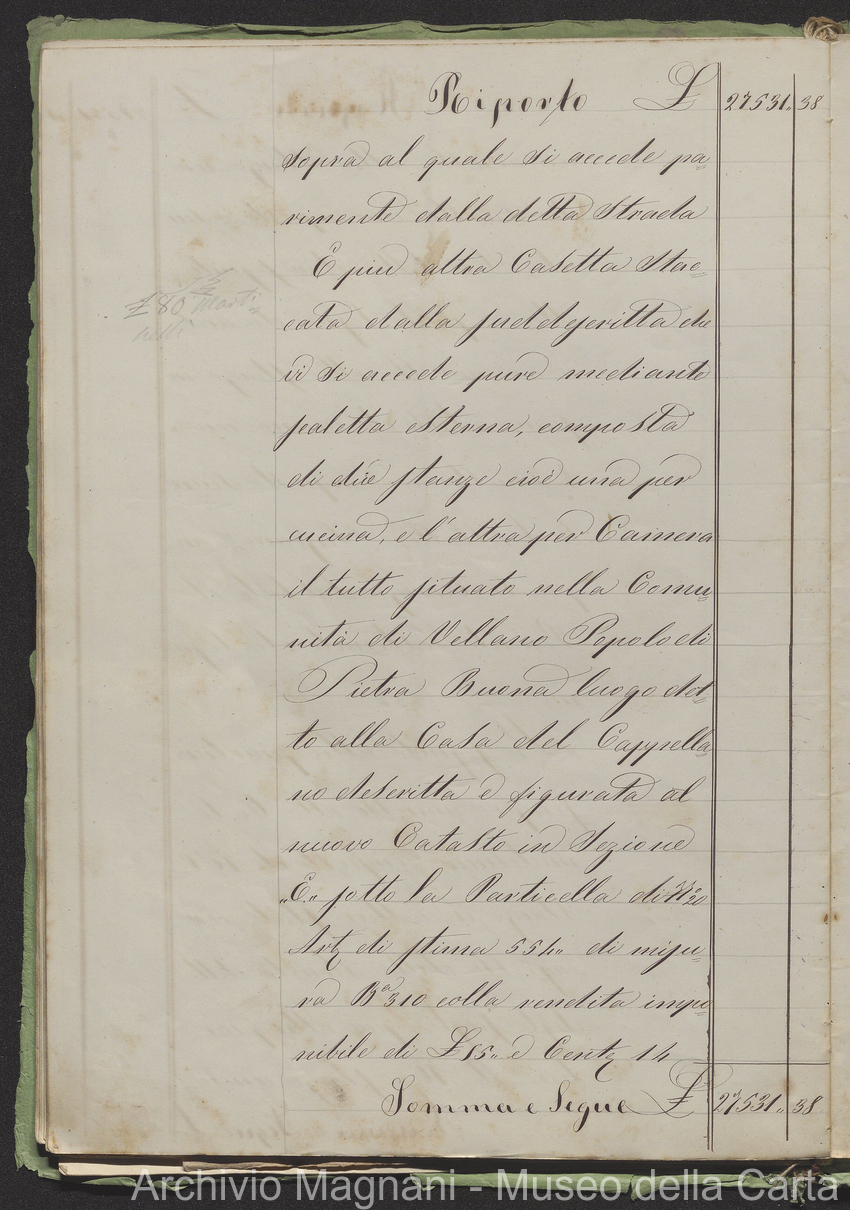 Riporto £ 27531 " 38
sopra al quale si accede pa=
rimente dalla detta Strada
E più altra Casetta Stac=
cata dalla suddescritta che
vi si accede pure mediante
scaletta esterna, composta
di due stanze cioè una per
cucina, e l'altra per Camera
il tutto situato nella Comu=
nità di Vellano Popolo di
Pietra Buona luogo det=
to alla Casa del Cappella=
no descritta e figurata al
nuovo Catasto in Sezione
"E" sotto la Particella di N° 20
Art di stima 554 " di misu=
ra Ba 310 colla rendita impo=
nibile di £ 15 " e Cent 14
Somma e Segue £ 27531 " 38
£ 80 Marti=
nelli
Archivio Magnani - Museo della Carta